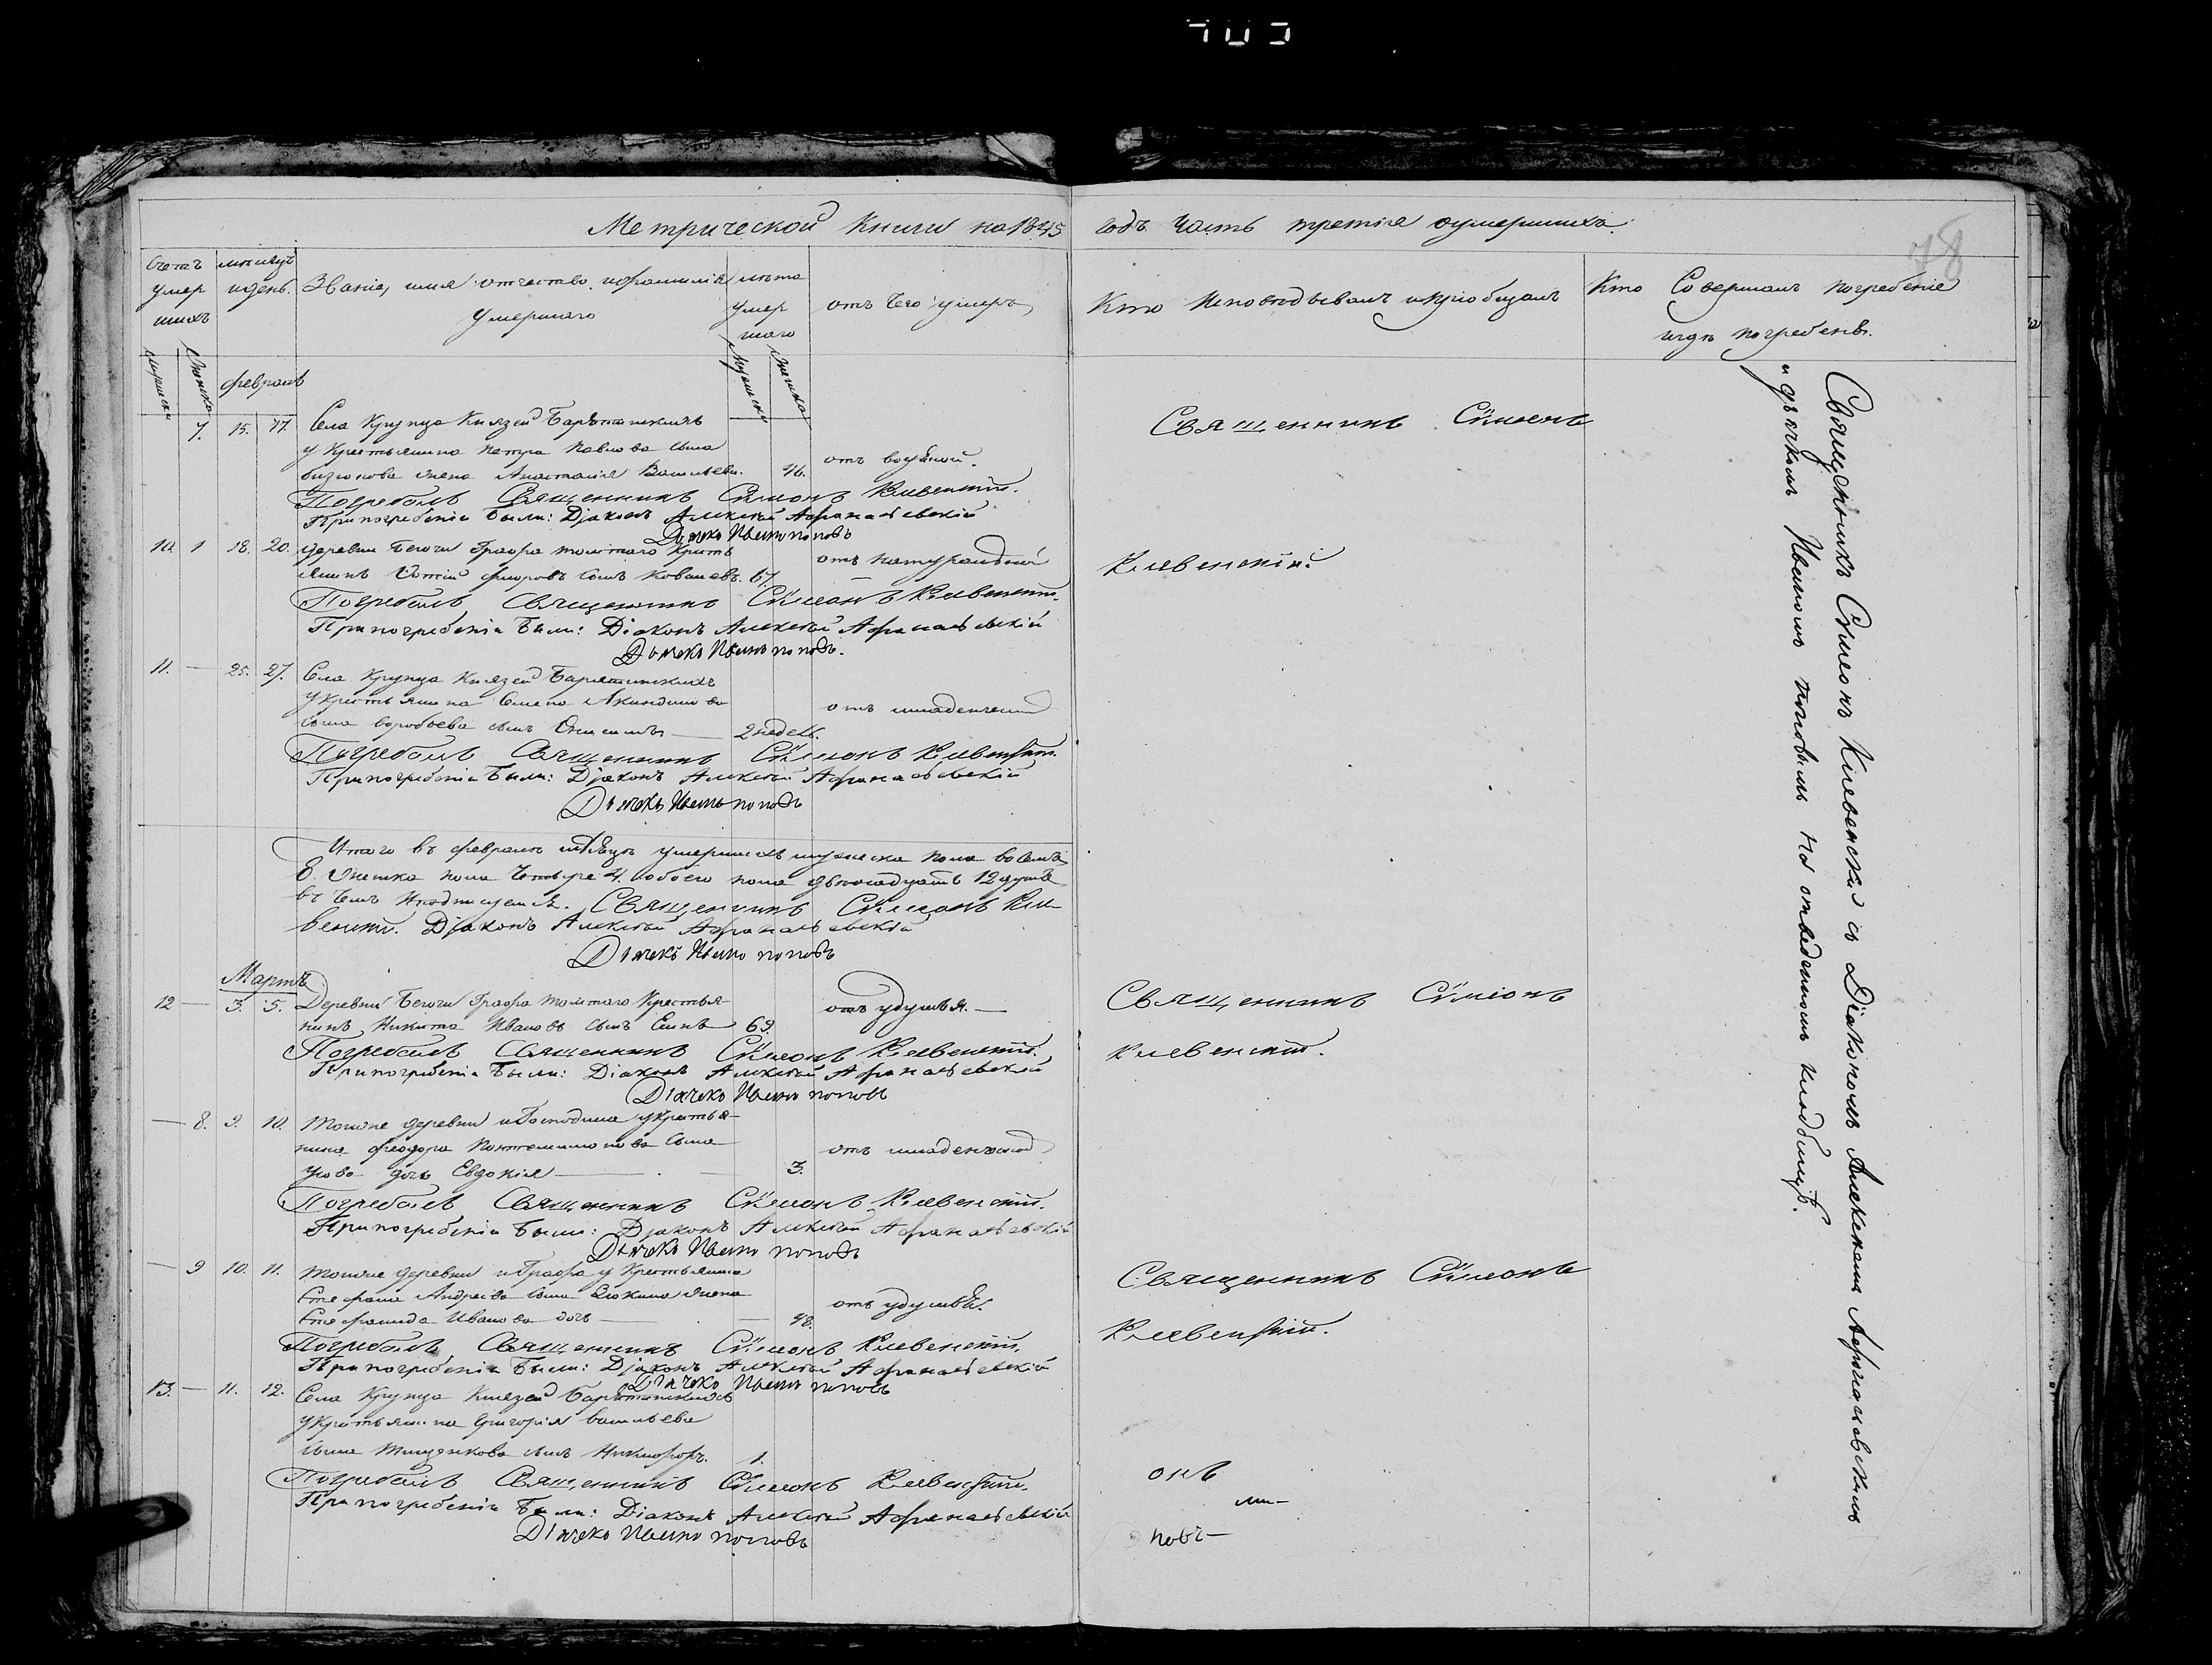 Метрической книги на 1845 годъ часть третія оумершихъ.
78
Счетъ умершихъ
мѣсяцъ и день.
Званіе, имя отчество, и фамилія умершаго
лѣта умершаго
отъ чего умеръ
Кто исповѣдывалъ и пріобщалъ
Кто Совершалъ погребеніе и гдѣ погребенъ.
мужеска
женска
февраль
мужеска
женска
7. 15. 17. Села Крупца Князей Барятинскихъ
у Крестьянина Петра Павлова сына
жена Анастасія Васильева. 46. отъ
Погребалъ Священникъ Сѵмеонъ Клевенскій.
При погребеніи были: Діаконъ Алексѣй Афанасьевскій
Дьячекъ Иванъ поповъ
Священникъ Сѵмеонъ
Клевенскій.
10. 1 18. 20. деревни графа толстаго Кресть
янинъ сынъ 67. отъ натуральной
Погребалъ Священникъ Сѵмеонъ Клевенскій.
При погребеніи были: Діаконъ Алексѣй Афанасьевскій
Дьячекъ Иванъ поповъ.
11. — 25. 27. Села Крупца Князей Барятинскихъ
у крестьянина Акиндинова
сына воробьева сынъ — 2 недель. отъ младенческой
Погребалъ Священникъ Сѵмеонъ Клевенскій.
При погребеніи были: Діаконъ Алексѣй Афанасьевскій
Дьячекъ Иванъ поповъ
Итого въ февралѣ мѣсяцѣ умершихъ мужеска пола восемь
8. женска пола четыре 4. обоего пола двенадцать 12 душъ
въ чемъ и подписуемся. Священникъ Сѵмеонъ Кле-
венскій. Діаконъ Алексѣй Афанасьевскій
Дьячекъ Иванъ поповъ
Мартъ
12 — 3. 5. Деревни графа толстаго Крестья-
нинъ Никита Ивановъ сынъ 69. отъ удушья. —
Погребалъ Священникъ Сѵмеонъ Клевенскій.
При погребеніи были: Діаконъ Алексѣй Афанасьевскій
Дьячекъ Иванъ поповъ
Священникъ Сѵмеонъ
Клевенскій.
— 8. 9. 10. тойже деревни и Господина у Крестья-
нина феодора сына
дочь Евдокія — 3. отъ младенческой
Погребалъ Священникъ Сѵмеонъ Клевенскій.
При погребеніи были: Діаконъ Алексѣй Афанасьевскій
Дьячекъ Иванъ поповъ
— 9 10. 11. тойже деревни и Графа у Крестьянина
Стефана Андреева сына жена
Стефанида Иванова дочь — 48. отъ удушья.
Погребалъ Священникъ Сѵмеонъ Клевенскій.
При погребеніи были: Діаконъ Алексѣй Афанасьевскій
Дьячекъ Иванъ поповъ
Священникъ Сѵмеонъ
Клевенскій.
13. — 11. 12. Села Крупца Князей Барятинскихъ
у Крестьянина Григорія васильева
сына сынъ Никифоръ. 1.
Погребалъ Священникъ Сѵмеонъ Клевенскій.
При погребеніи были: Діаконъ Алексѣй Афанасьевскій
Дьячекъ Иванъ поповъ
онъ
повъ—
Священникъ Сѵмеонъ Клевенскій съ Діакономъ Алексѣемъ Афанасьевскимъ
и дьячкомъ Иваномъ поповымъ на отведенномъ кладбищѣ.